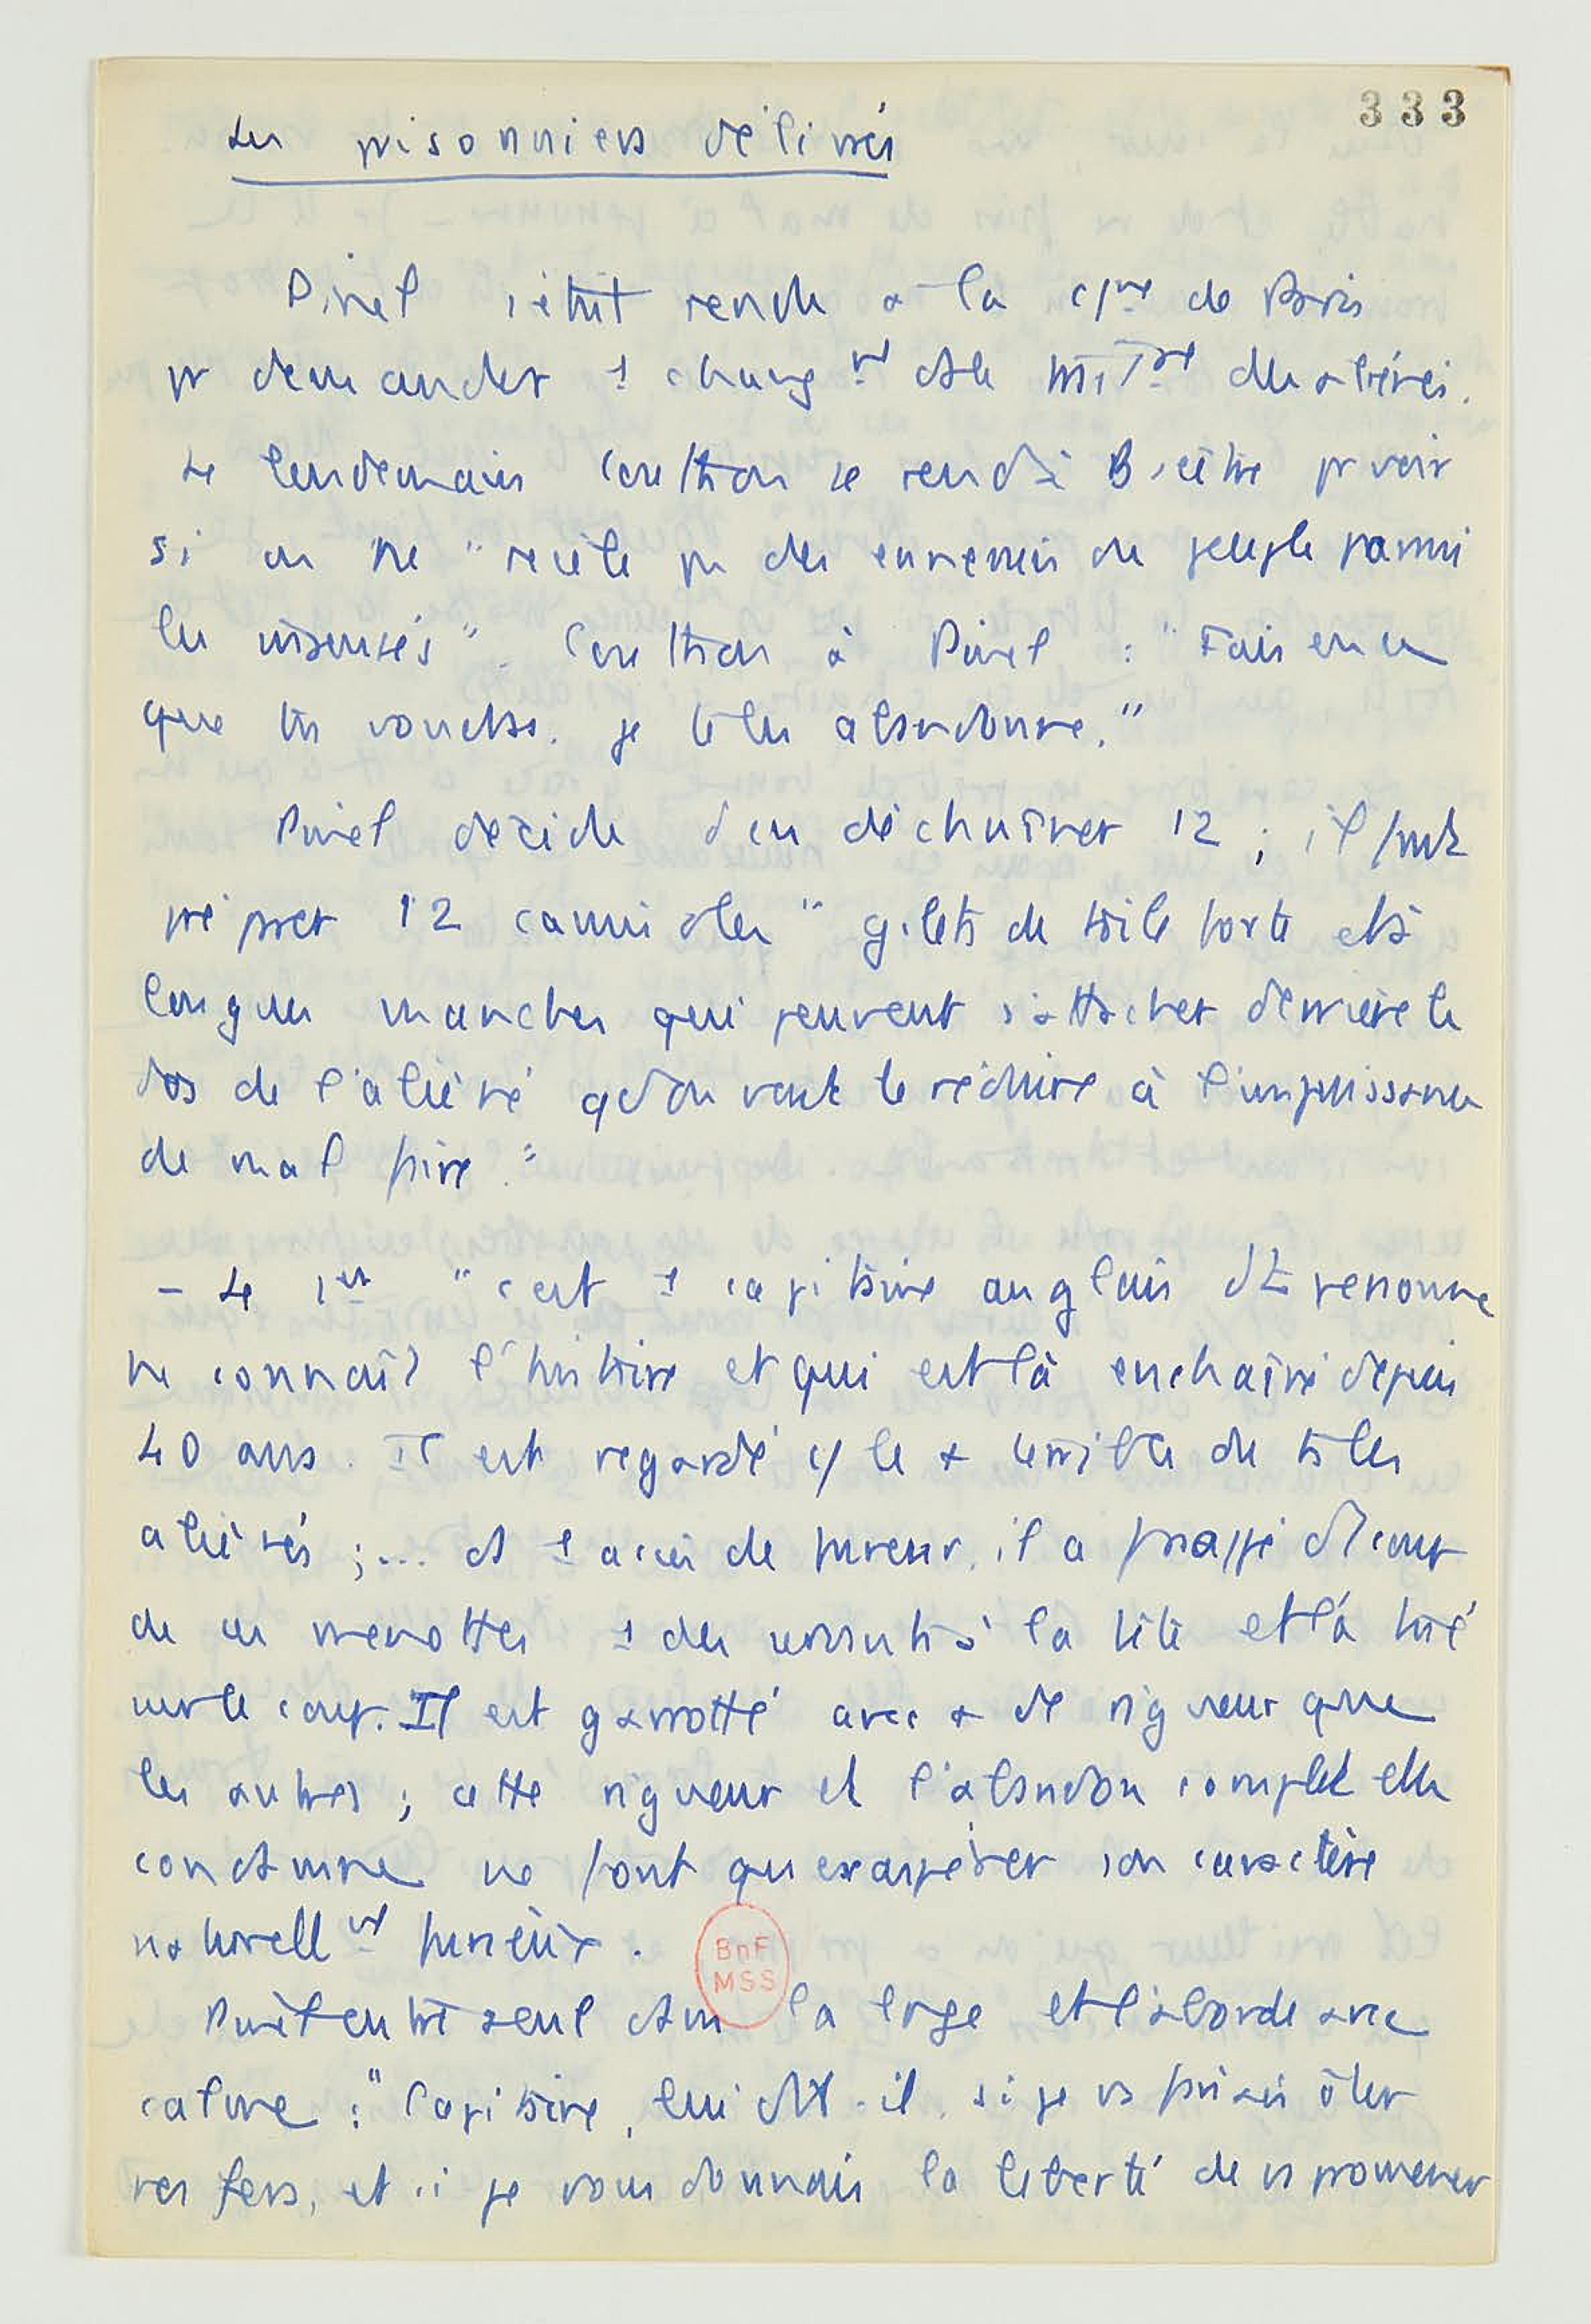 333
Les prisonniers délivrés
Pinel s'était rendu à la c/ne de Paris
pr demander 1 changnt ds le des aliénés.
Le lendemain Couthon se rend à Bicêtre pr voir
si on ne "recèle pas des ennemis du peuple parmi
les insensés". Couthon à Pinel : "Fais en ce
que tu voudras. je te les abandonne."
Pinel décide d'en déchaîner 12 ; il fait
préparer 12 camisoles "gilets de toile forte et à
longues manches qui peuvent s'attacher derrière le
dos de l'aliéné qd on veut le réduire à l'impuissance
de mal faire".
- Le 1er "c'est 1 capitaine anglais dt personne
ne connaît l'histoire et qui est là enchaîné depuis
40 ans. Il est regardé c/ le + terrible de ts les
aliénés ;... ds 1 accès de fureur, il a frappé d'1 coup
de ses menottes 1 des servants à la tête et l'a tué
sur le coup. Il est garrotté avec + de rigueur que
les autres ; cette rigueur et l'abandon complet elle
condamne ne font qu'exaspérer son caractère
naturellnt furieux.
Pinel entre seul dans la loge et l'aborde avec
calme : "Capitaine, lui dit-il, si je vs faisais ôter
vos fers, et si je vous donnais la liberté de vs promener
BnF
MSS